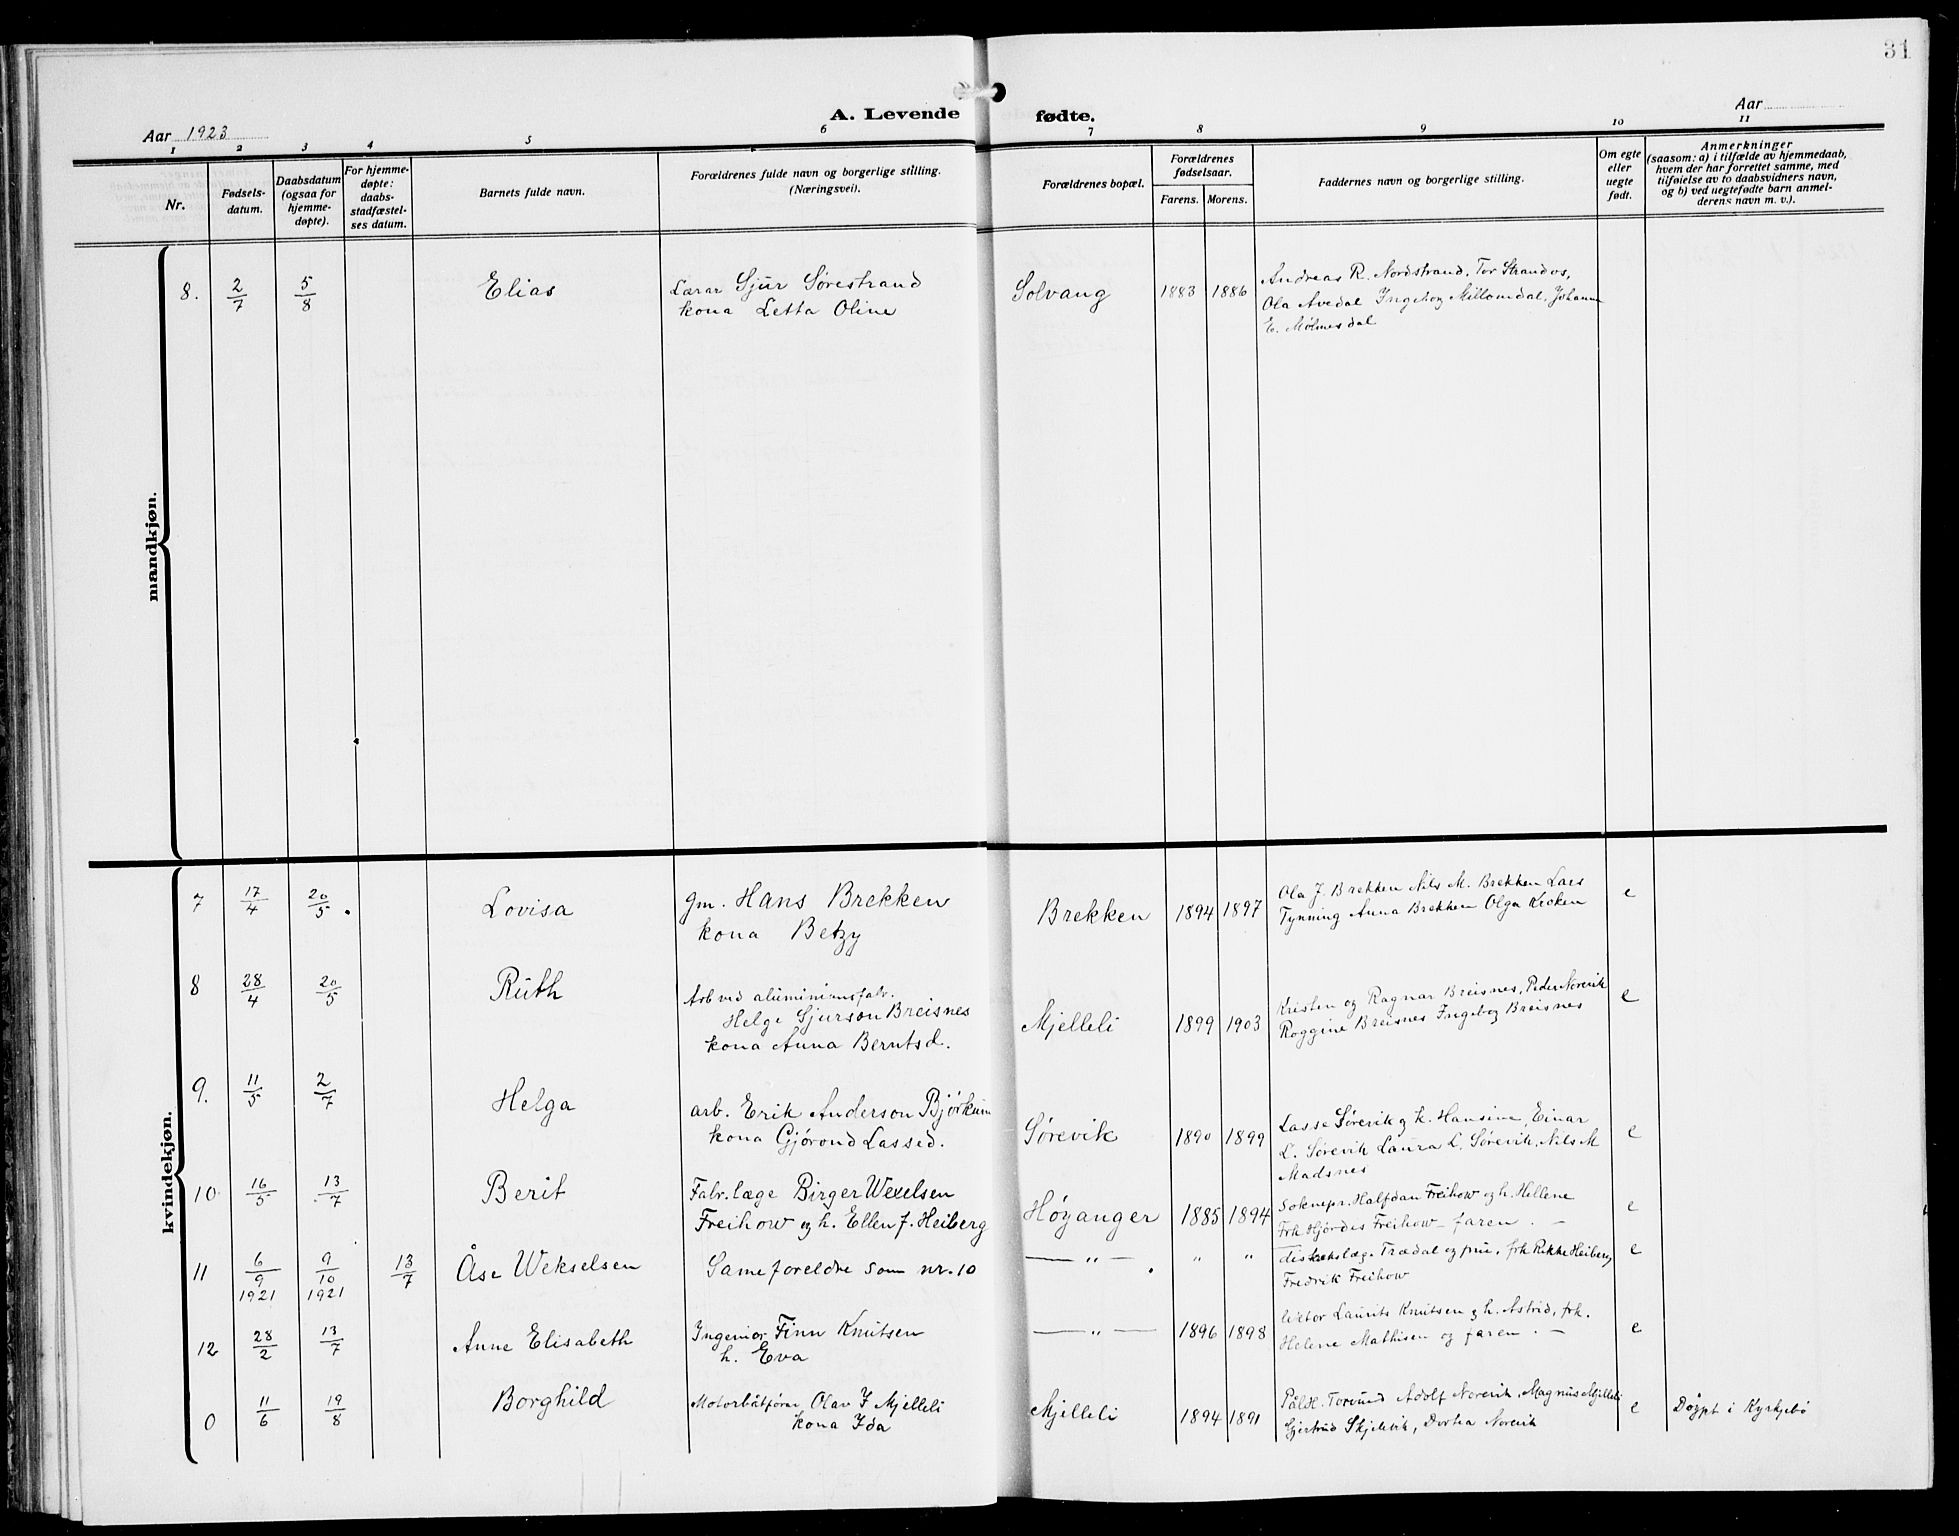 31
A. Levende fødte.
Aar 1923
Aar
1 2 3 4 5 6 7 8 9 10 11
Nr.
Fødsels-
datum.
Daabsdatum
(ogsaa for
hjemme-
døpte).
For hjemme-
døpte:
daabs-
stadfæstel-
ses datum.
Barnets fulde navn.
Forældrenes fulde navn og borgerlige stilling.
(Næringsvei).
Forældrenes bopæl.
Forældrenes
fødselsaar.
Farens. Morens.
Faddernes navn og borgerlige stilling.
Om egte
eller
uegte
født.
Anmerkninger
(saasom: a) i tilfælde av hjemmedaab,
hvem der har forrettet samme, med
tilføielse av to daabsvidners navn,
og b) ved uegtefødte barn anmel-
derens navn m. v.).
mandkjøn.
8. 2/7 5/8 Elias
Lærar Sjur Sørestrand
kona Letta Oline
Solvang 1883 1886
Andreas R. Nordstrand, Tor Strandos,
Ola Avedal Ingebog Millomdal, Johanne
E. Mølmesdal
kvindekjøn.
7 17/4 20/5. Lovisa
gm. Hans Brekken
kona Betzy
Brekken 1894 1897
Ola J. Brekken Nils M. Brekken Lars
Tynning Anna Brekken Olga Kroken
e
8 28/4 20/5 Ruth
Arb ved aluminiumsfabr.
Helge Sjurson Breisnes
kona Anna Berntsd.
Mjelleli 1899 1903
Kristen og Ragnar Breisnes, Peder Norevik
Roggine Breisnes Ingebog Breisnes
e
9. 11/5 2/7 Helga
arb. Erik Anderson Bjørkum
kona Gjørond Lassed.
Sørevik 1890 1899
Lasse Sørevik og k. Hansine, Einar
L. Sørevik Laura L. Sørevik, Nils M
Madsnes
e
10 16/5 13/7 Berit
Fabr. læge Birger Wexelsen
Freihow og h. Ellen f. Heiberg
Høyanger 1885 1894
Soknepr. Halfdan Freihow og h. Hellene
Frk Hjørdes Freihow – faren. –
e
11 6/9 1921 9/10 1921 13/7 Åse Wekselsen
Same foreldre som nr. 10
— " — " "
distriktslæge Trædal og frue, frk Rikke Heiberg,
Fredrik Freihow
e
12 28/2 13/7 Anne Elisabeth
Ingeniør Finn Knutsen
h. Eva
— " — 1896 1898
lektor Laurits Knutsen og h. Astrid, frk.
Helene Mathisen og faren. –
e
0 11/6 19/8 Borghild
Motorbåtfører Olav I Mjelleli
kona Ida
Mjelleli 1894 1891
Torvund Adolf Norevik, Magnus Mjelleli
Gjertrud Skjelvik, Dortea Norevik
e
Døypt i Kyrkjebø